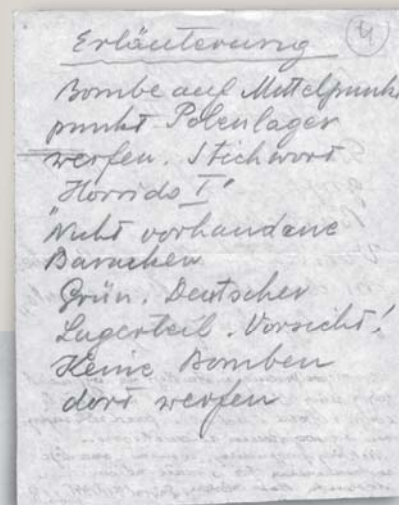 Erläuterung
4
Bombe auf Mittelpunkt
punkt Polenlager
werfen. Stichwort
Horrido I'
"Nicht vorhandene
Baracken
Grün. Deutscher
Lagerteil. Vorsicht!
Keine Bomben
dort werfen